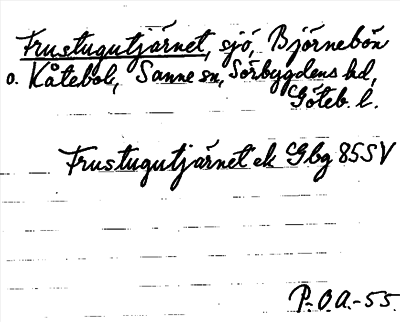 Frustugutjärnet, sjö, Björnebön
o. Kåtebol, Sanne sn, Sörbygdens hd,
Göteb. l.
Frustugutjärnet ek Gbg 85SV
P.O.A.-55.